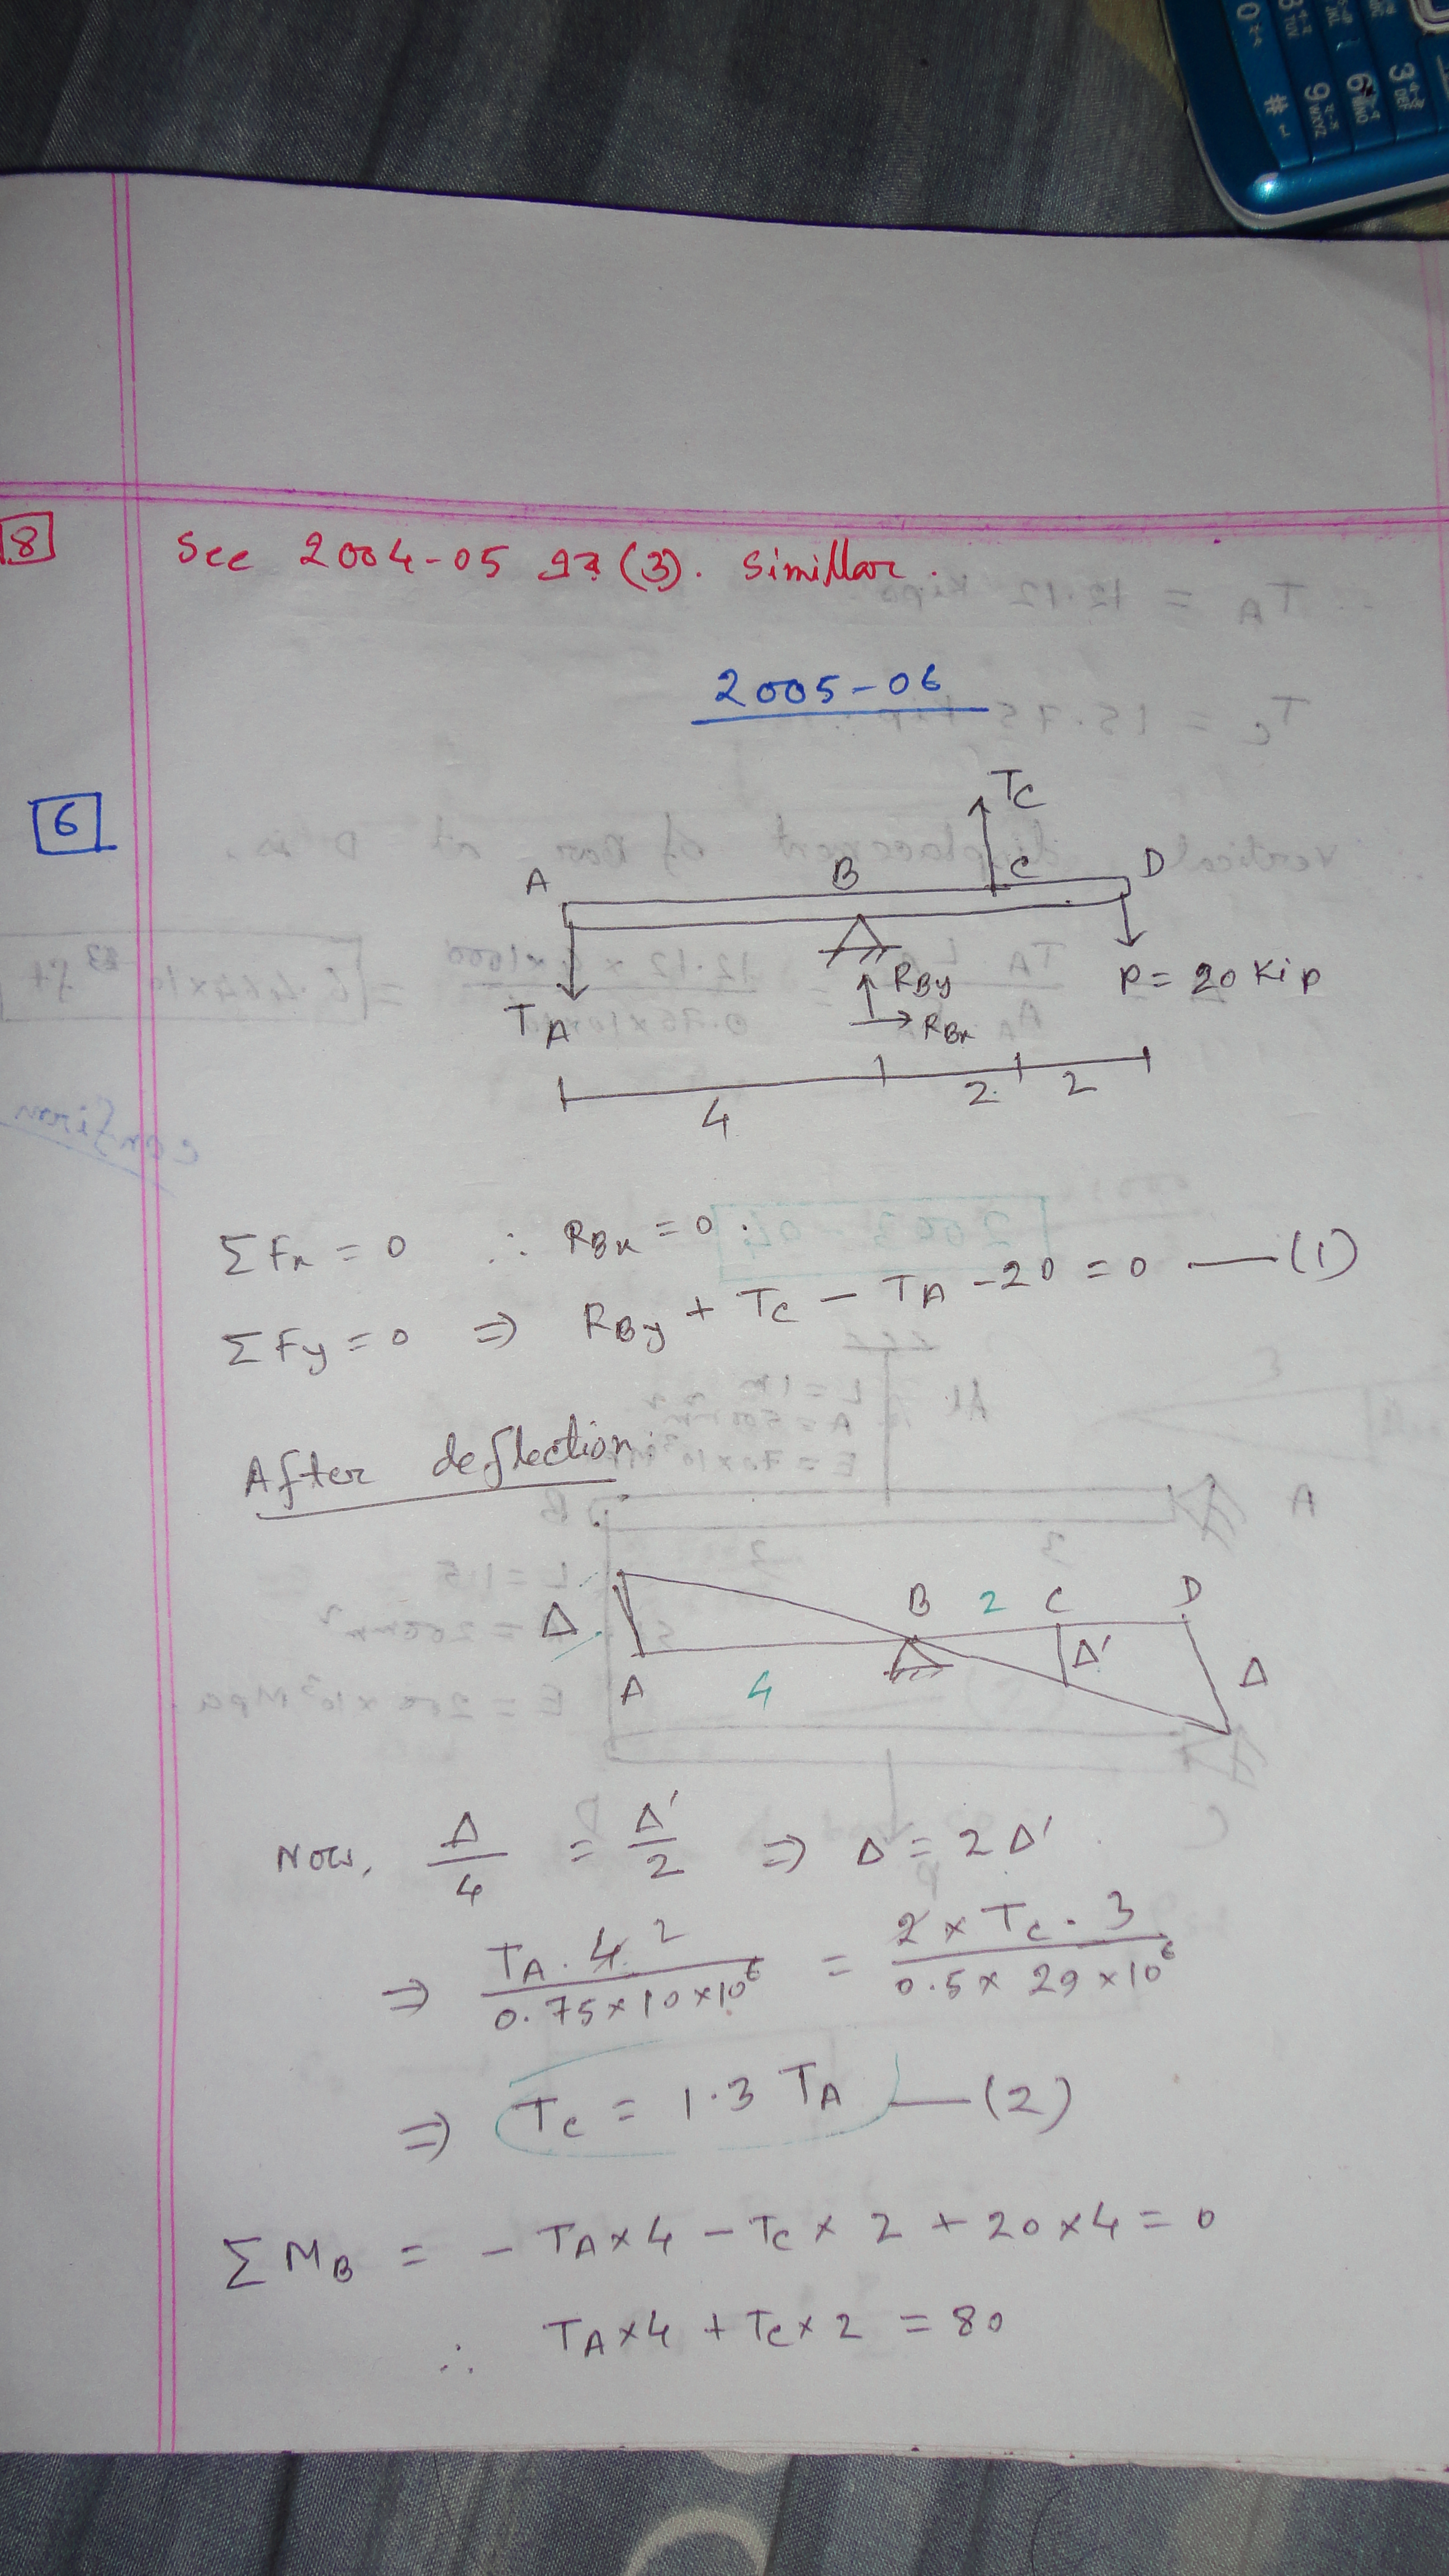 8
See 2004-05 এর (3). Simillar.
2005-06
6
TC
A B C D
TA
RBy
RBx
P = 20 Kip
4 2 2
ΣFx = 0 ∴ RBx = 0.
ΣFy = 0 ⇒ RBy + TC - TA - 20 = 0 — (1)
After deflection:
B 2 C D
Δ Δ' Δ
A 4
Now, Δ/4 = Δ'/2 ⇒ Δ = 2Δ'
⇒ TA . 4 2 / 0.75 × 10 × 10⁶ = 2 × TC . 3 / 0.5 × 29 × 10⁶
⇒ TC = 1.3 TA — (2)
ΣMB = - TA × 4 - TC × 2 + 20 × 4 = 0
∴ TA × 4 + TC × 2 = 80